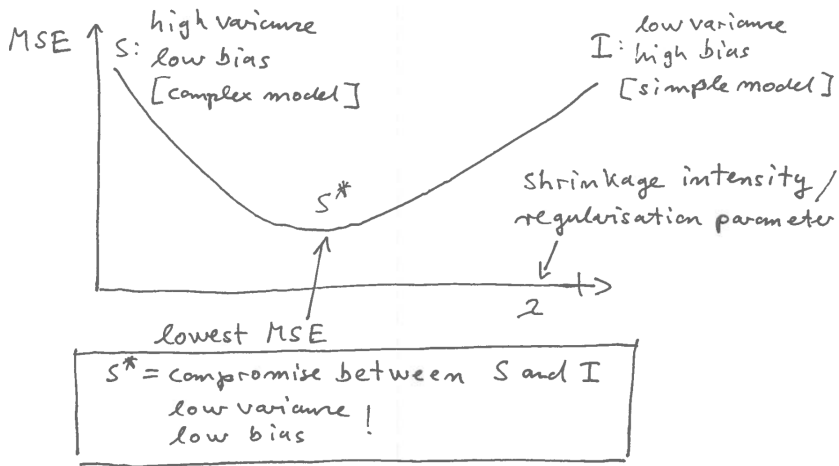 MSE
S: high variance
low bias
[complex model]
I: low variance
high bias
[simple model]
S*
shrinkage intensity /
regularisation parameter
λ
lowest MSE
S* = compromise between S and I
low variance
low bias !